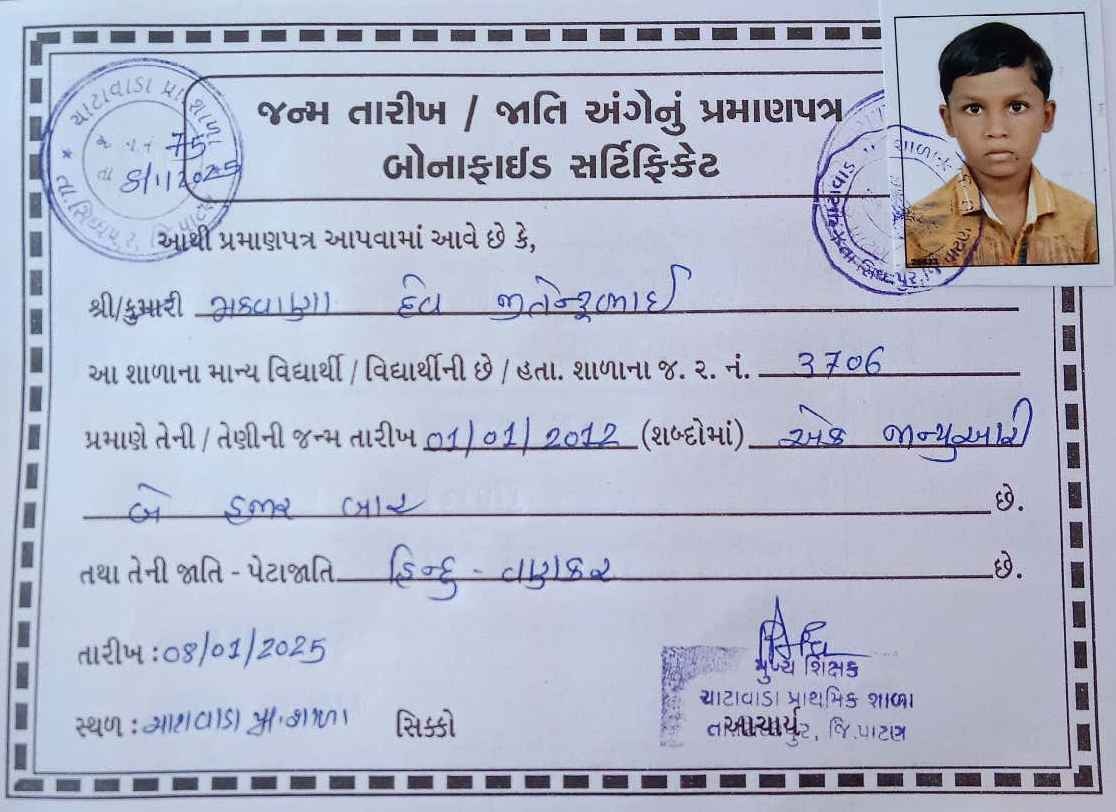 ચાટાવાડા પ્રા. શાળા
જા.નં. 75
તા. 8/1/2025
તા.સિધ્ધપુર, જિ.પાટણ
જન્મ તારીખ / જાતિ અંગેનું પ્રમાણપત્ર
બોનાફાઈડ સર્ટિફિકેટ
આથી પ્રમાણપત્ર આપવામાં આવે છે કે,
શ્રી/કુમારી મકવાણા દેવ જીતેન્દ્રભાઈ
આ શાળાના માન્ય વિદ્યાર્થી / વિદ્યાર્થીની છે / હતા. શાળાના જ. ર. નં. 3706
પ્રમાણે તેની / તેણીની જન્મ તારીખ 01/01/2012 (શબ્દોમાં) એક જાન્યુઆરી
બે હજાર બાર છે.
તથા તેની જાતિ - પેટાજાતિ હિન્દુ - વણકર છે.
તારીખ : 08/01/2025
મુખ્ય શિક્ષક
ચાટાવાડા પ્રાથમિક શાળા
સ્થળ : ચાટાવાડા પ્રા. શાળા સિક્કો આચાર્ય
જિ.પાટણ